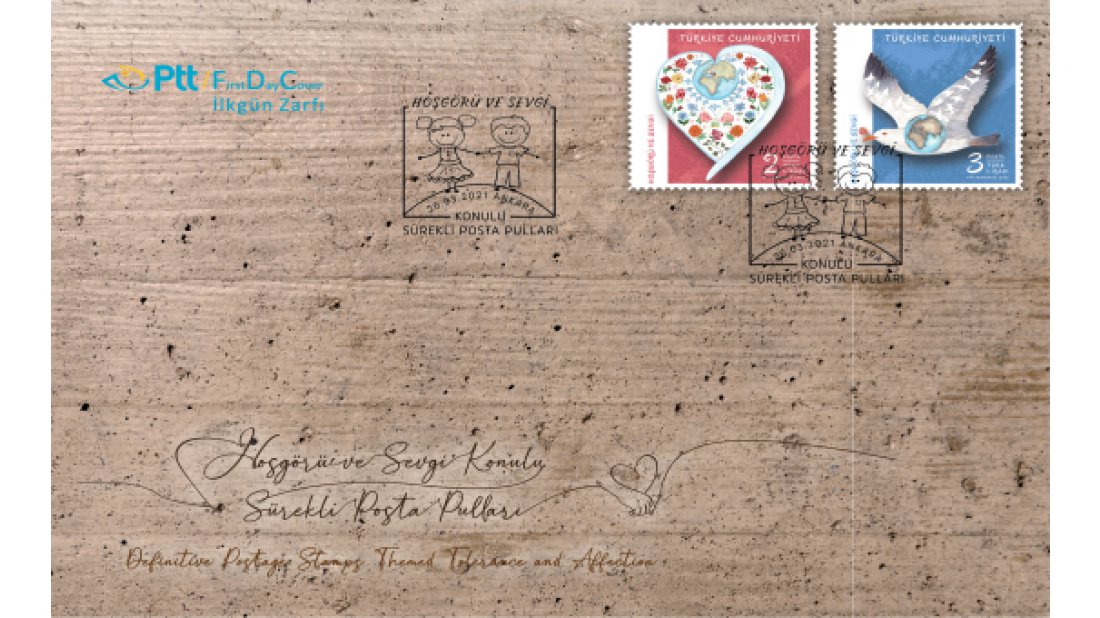 Ptt / First Day Cover
İlkgün Zarfı
HOŞGÖRÜ VE SEVGİ
20.03.2021 ANKARA
KONULU
SÜREKLİ POSTA PULLARI
TÜRKİYE CUMHURİYETİ
HOŞGÖRÜ VE SEVGİ
2
TÜRKİYE CUMHURİYETİ
HOŞGÖRÜ VE SEVGİ
3
HOŞGÖRÜ VE SEVGİ
20.03.2021 ANKARA
KONULU
SÜREKLİ POSTA PULLARI
Hoşgörü ve Sevgi Konulu
Sürekli Posta Pulları
Definitive Postage Stamps Themed Tolerance and Affection